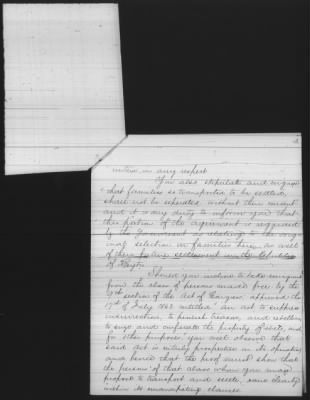 in any respect
You also stipulate and engage
that families so transported to be settled
shall not be separated without their consent
and it is my duty to inform you that
this portion of the agreement is regarded
by the Government as relating to the orig-
inal selection in families here as well
of them future settlement in the Republic
of Hayti
Should you incline to take emigrants
from the class of persons made free by the
9th section of the Act of Congress, approved the
17th of July 1862 entitled "an act to suppress
insurrection, to punish treason, and rebellion
to seize and confiscate the property of rebels, and
for other purposes you will observe that
said Act is entirely prospective in its operation
and hence that the proof must show that
the persons of that class whom you may
propose to transport and settle, came clearly
within its emancipating clauses